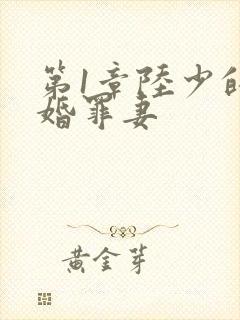 第1章陸少的
婚罪妻
黃金芽